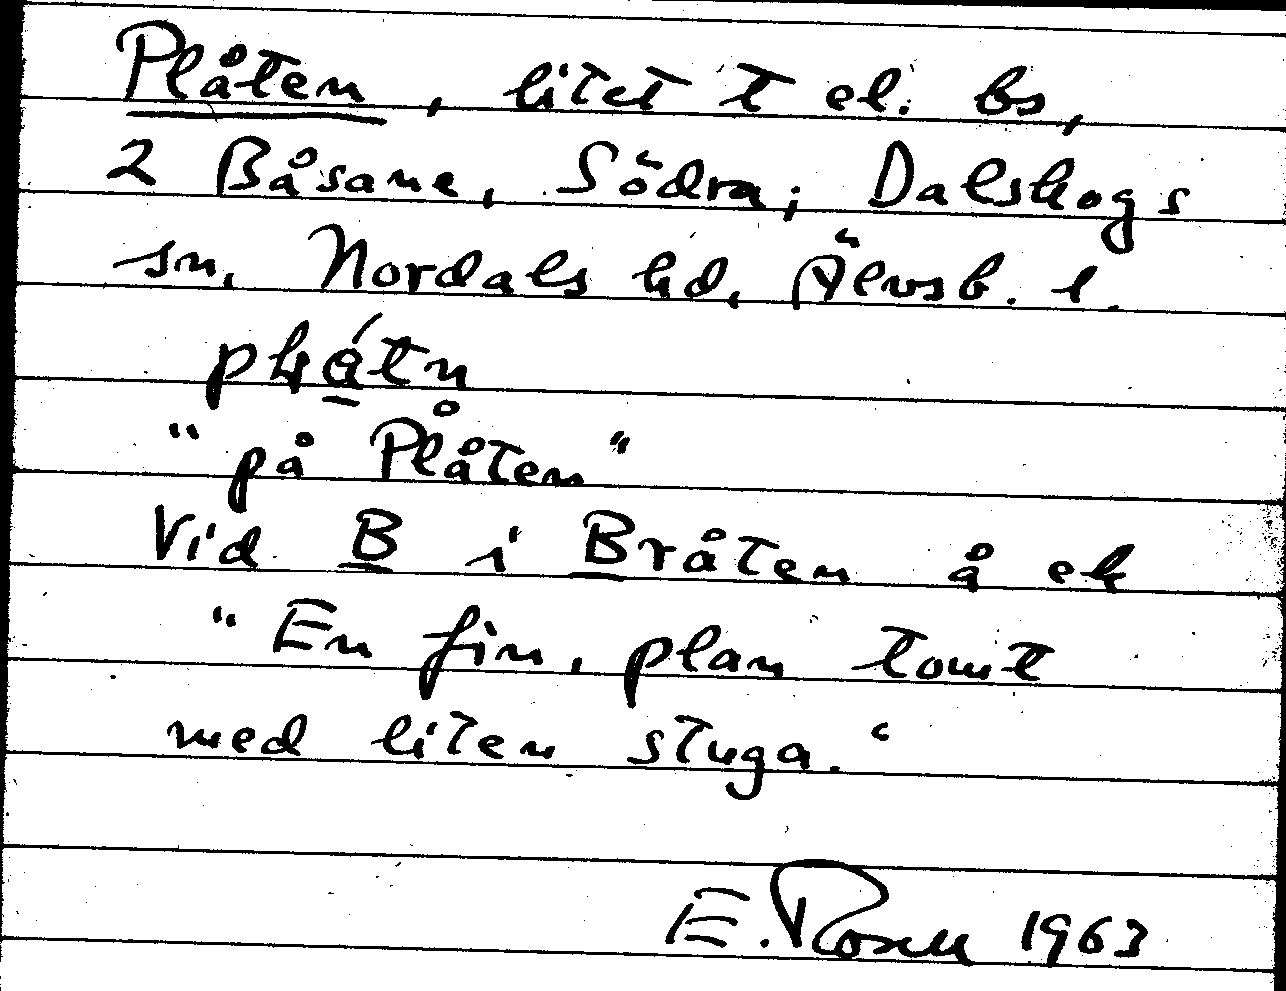 Plåten, litet t el. bs,
2 Båsane, Södra, Dalskogs
sn, Nordals hd, Älvsb. l.
"på Plåten"
Vid B i Bråten å ek
"En fin, plan tomt
med liten stuga."
E. Rosell 1963